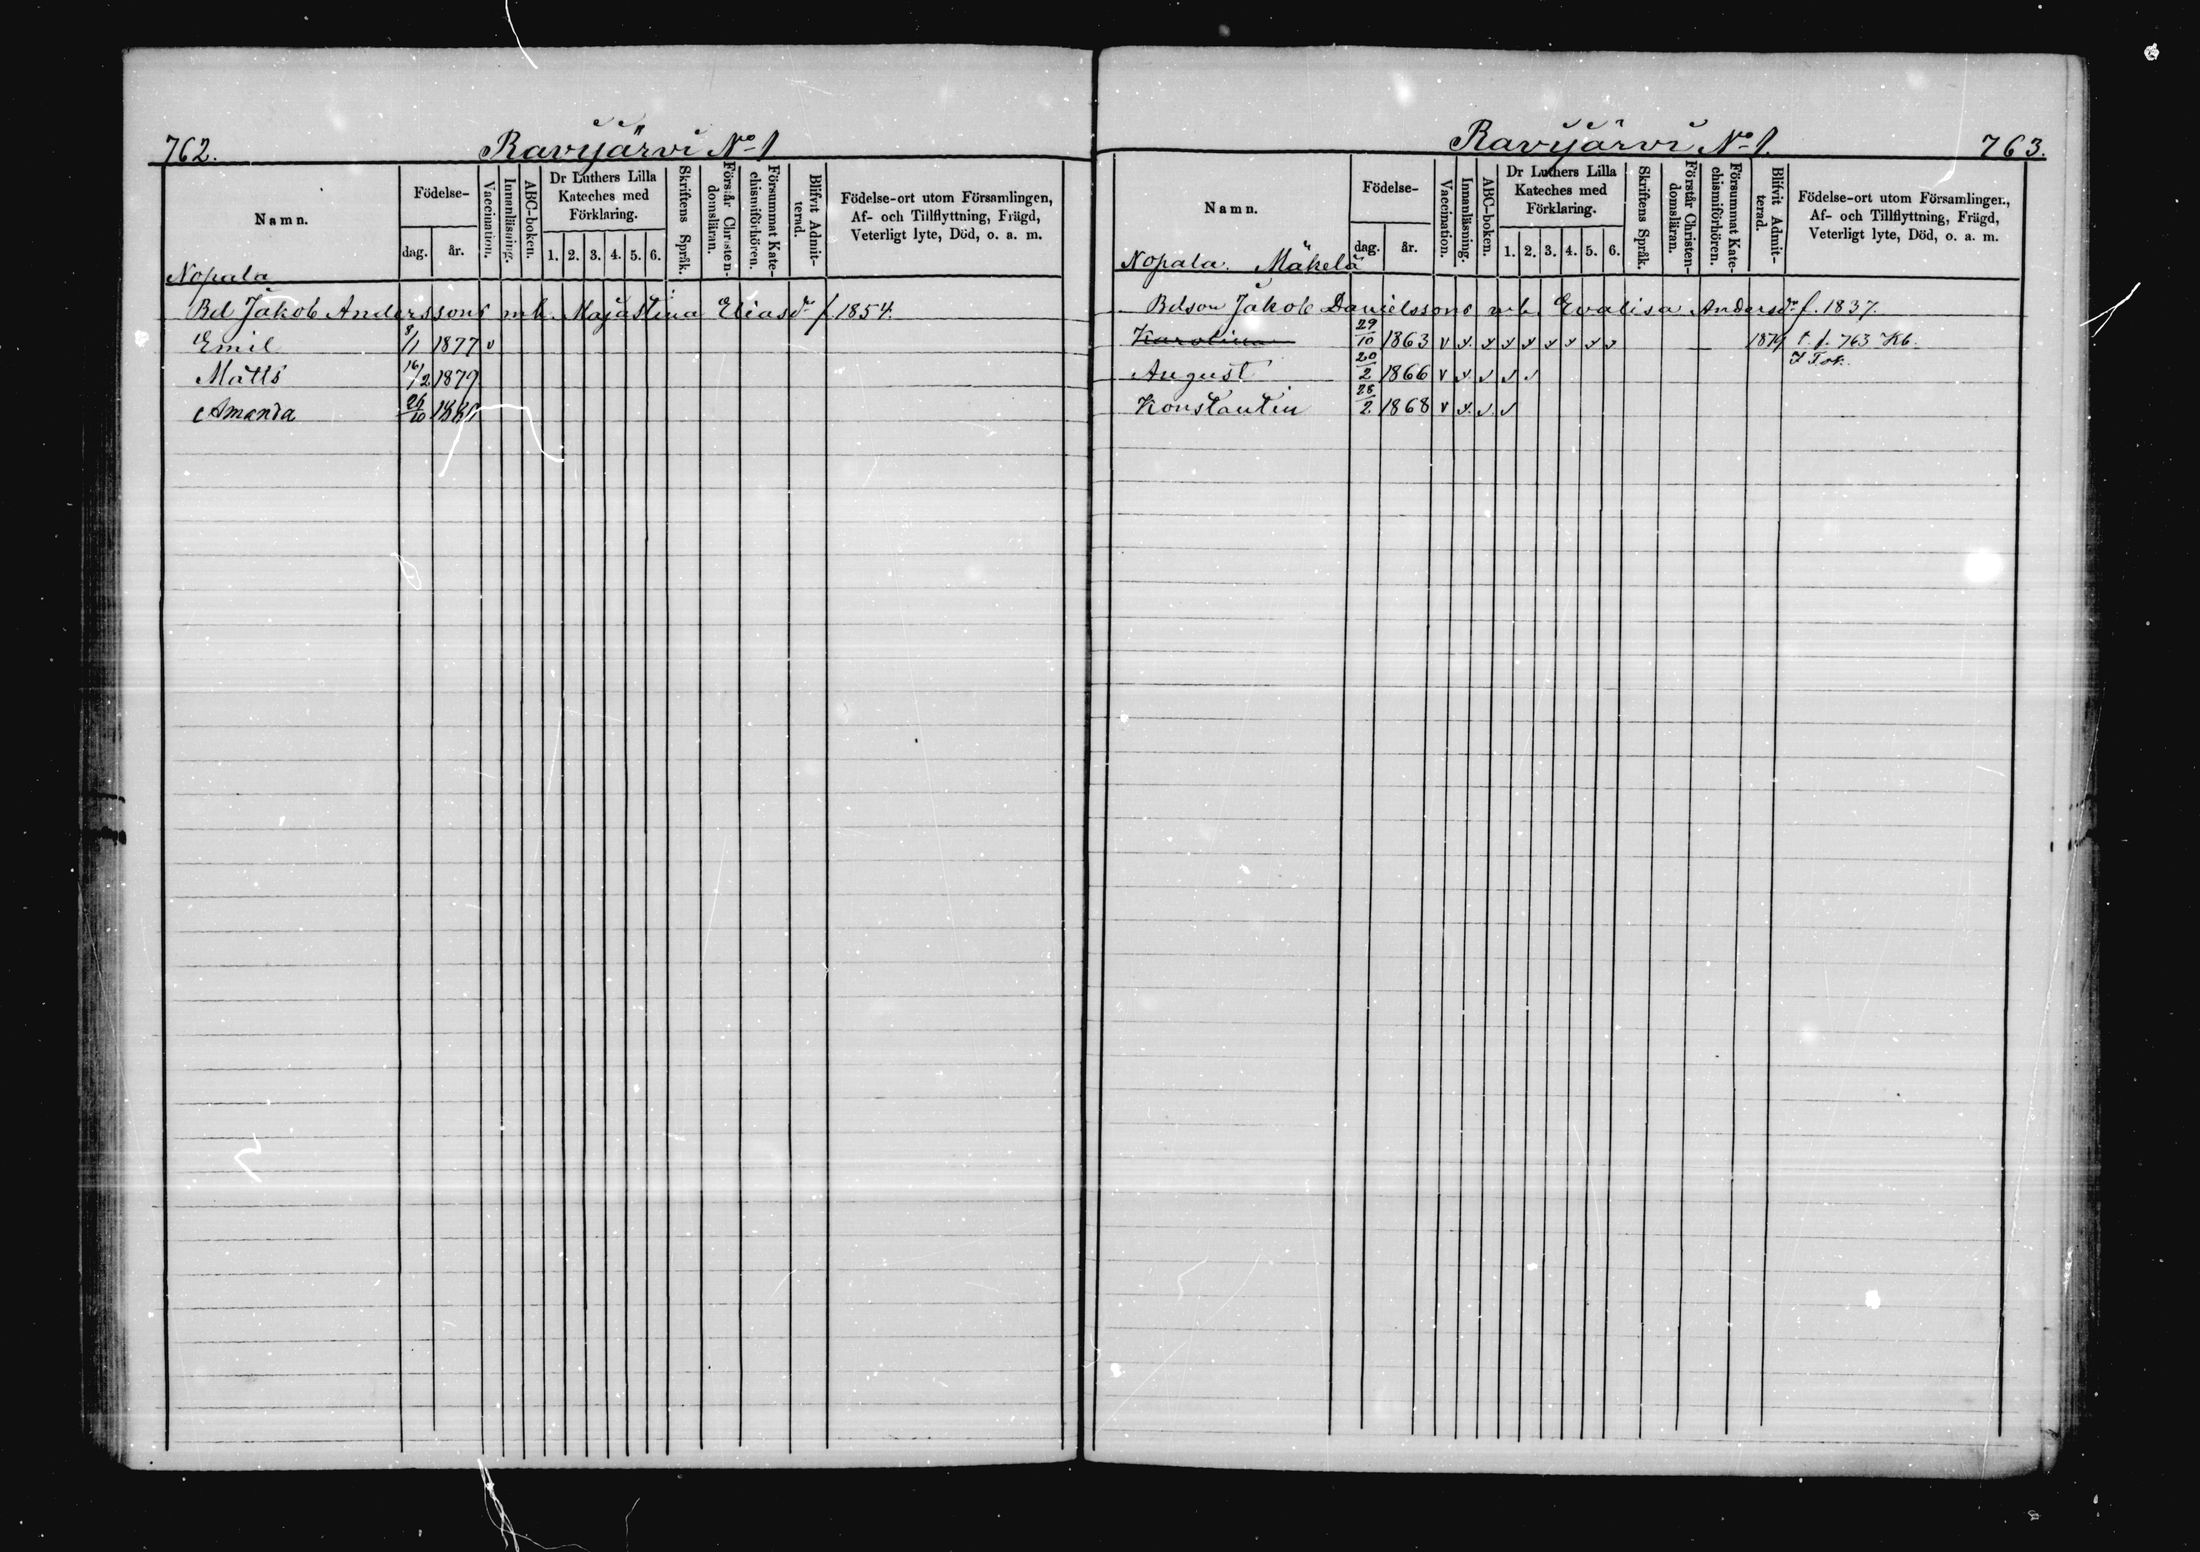 762. Ravijärvi No 1
Namn. Födelse- dag. år. Vaccination. Innanläsning. ABC-boken. Dr Luthers Lilla Kateches med Förklaring. 1. 2. 3. 4. 5. 6. Skriftens Språk. Förstår Christendomsläran. Försummat Katechismiförhören. Blifvit Admitterad. Födelse-ort utom Församlingen, Af- och Tillflyttning, Frägd, Veterligt lyte, Död, o. a. m.
Nopala
Bd Jakob Anderssons mh. Majastina Eliasdr f. 1854.
Emil 8/1 1877 v
Matts 16/2 1879
Amanda 26/10
Ravijärvi No 1. 763.
Namn. Födelse- dag. år. Vaccination. Innanläsning. ABC-boken. Dr Luthers Lilla Kateches med Förklaring. 1. 2. 3. 4. 5. 6. Skriftens Språk. Förstår Christendomsläran. Försummat Katechismiförhören. Blifvit Admitterad. Födelse-ort utom Församlingen, Af- och Tillflyttning, Frägd, Veterligt lyte, Död, o. a. m.
Nopala. Mäkelä
Bdson Jakob Danielssons mh. Evalisa Andersdr f. 1837.
Karolina 29/10 1863 v v v v v v v v v 1879 t. f. 763 Kb.
August 20/2 1866 v v v v v
Konstantin 28/2 1868 v v v v